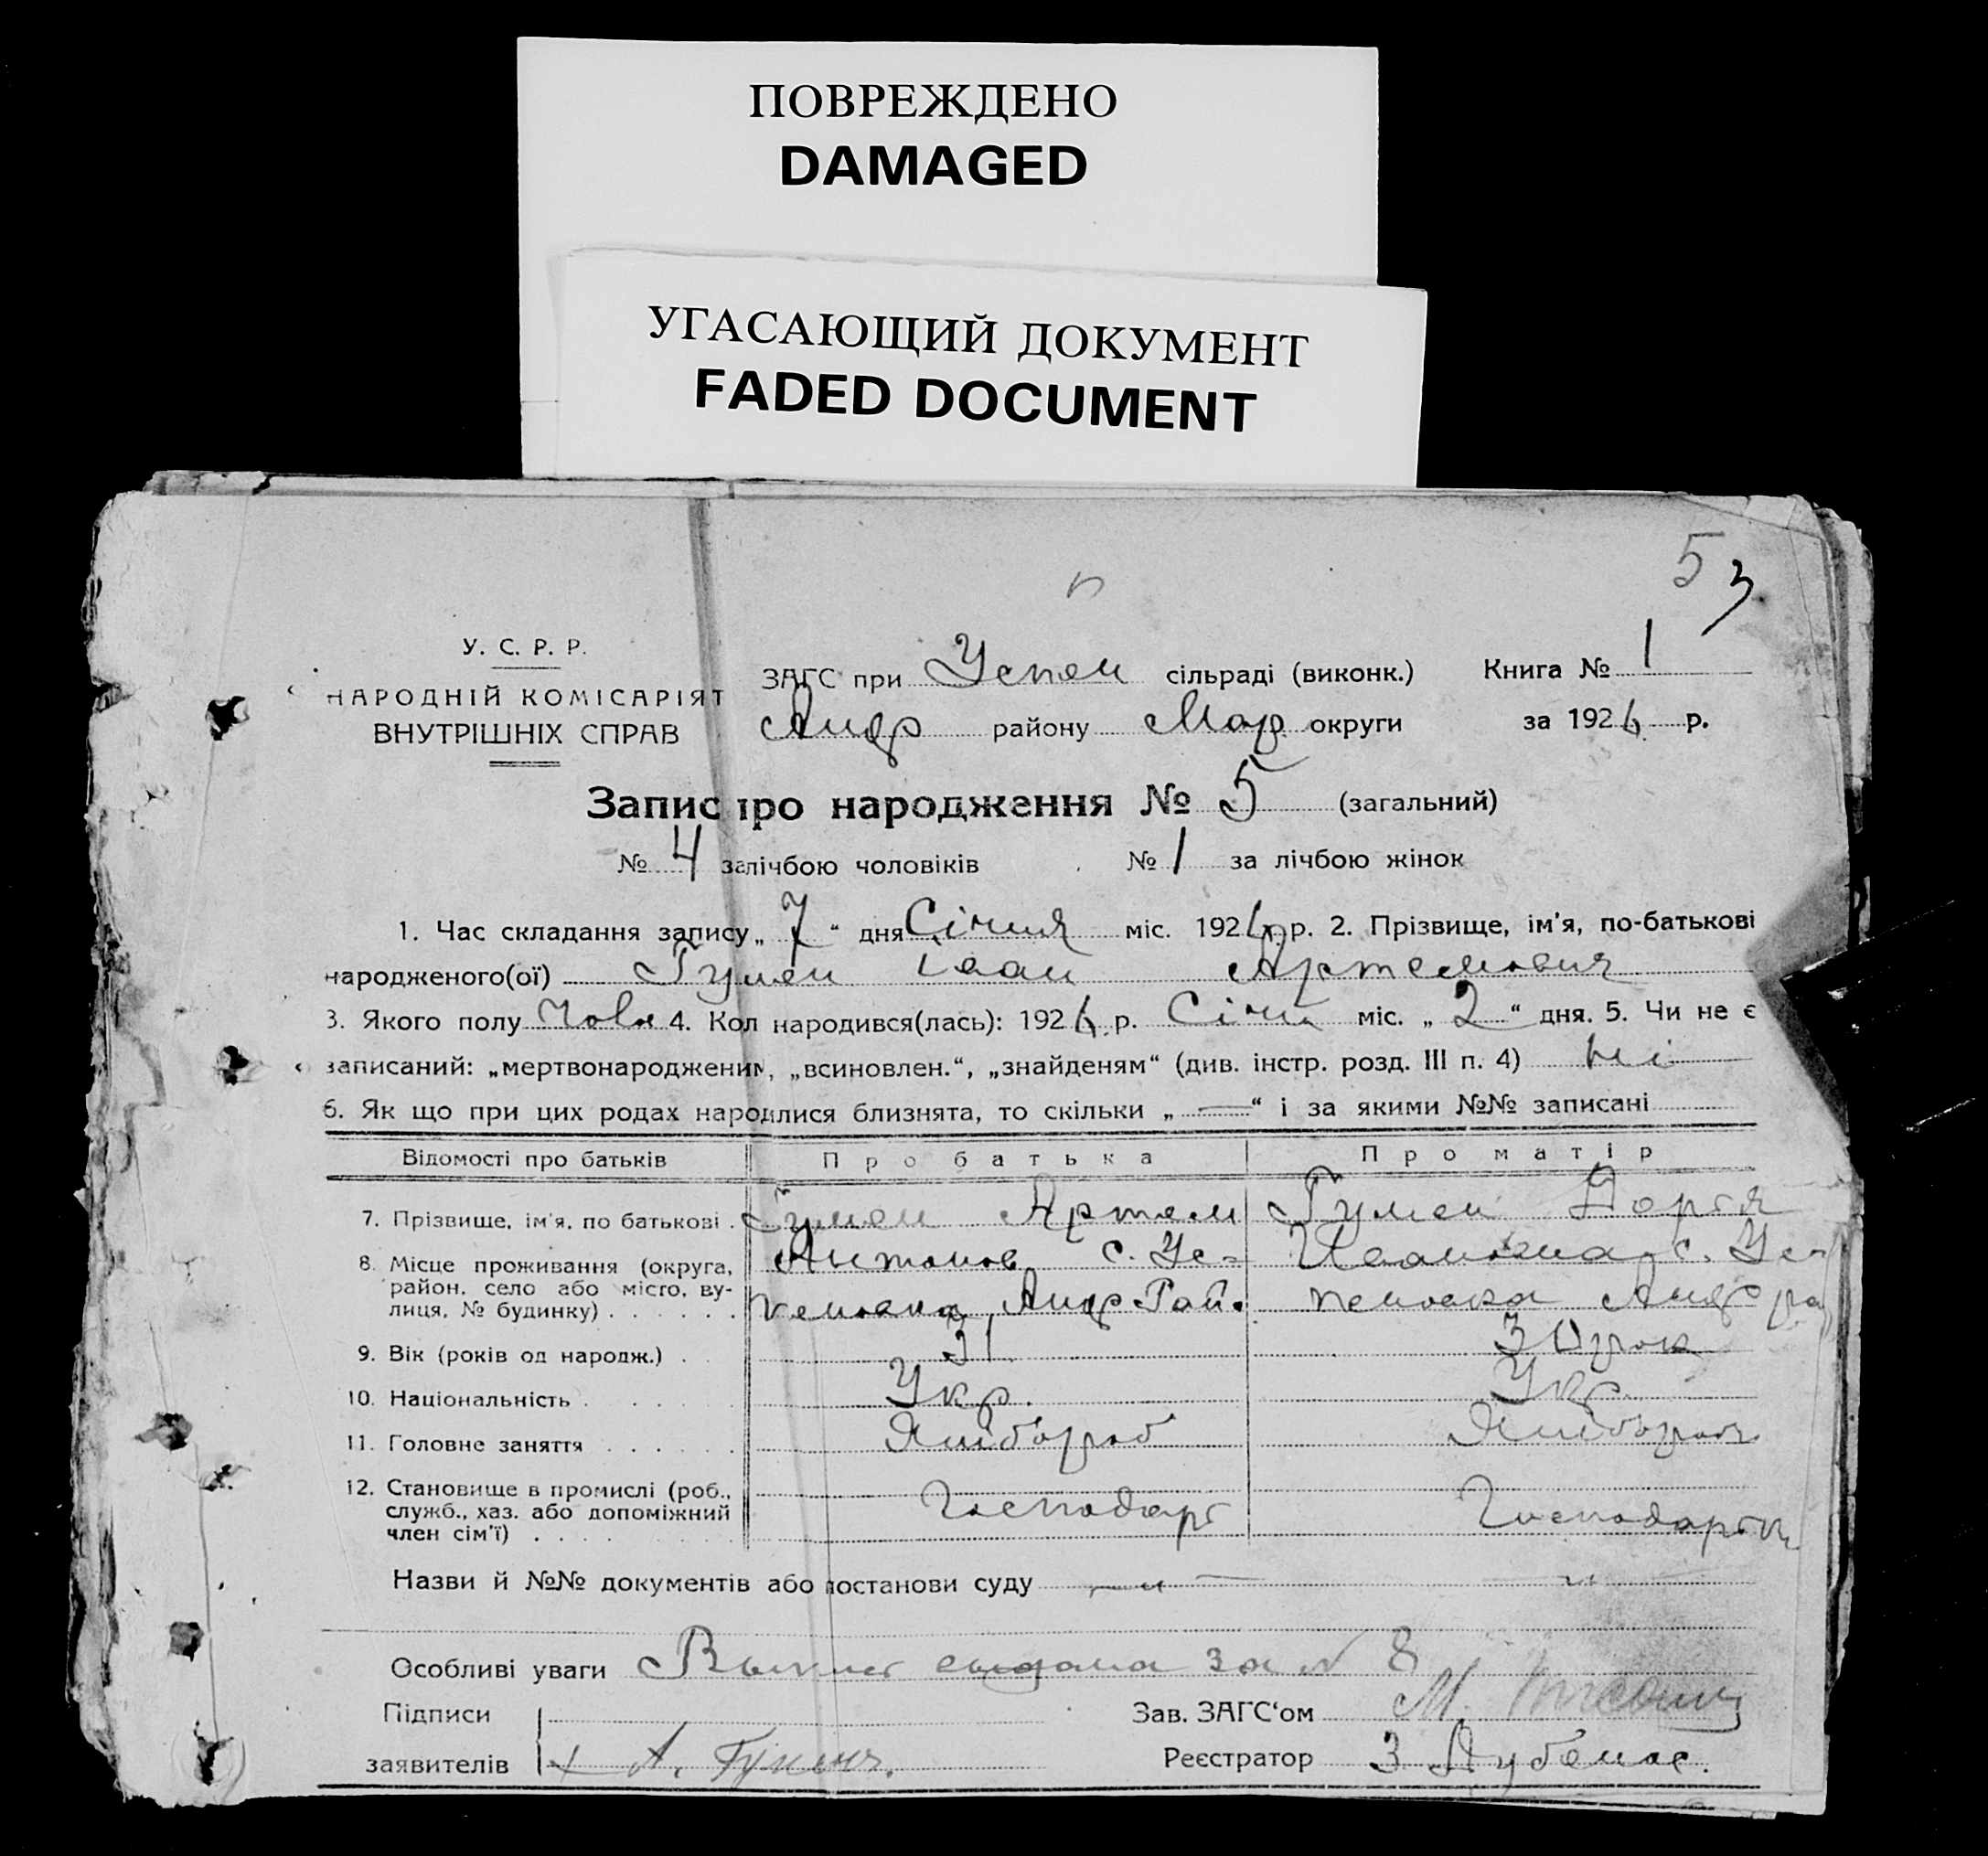 ПОВРЕЖДЕНО
DAMAGED
УГАСАЮЩИЙ ДОКУМЕНТ
FADED DOCUMENT
53
У. С. Р. Р.
НАРОДНІЙ КОМІСАРІЯТ
ВНУТРІШНІХ СПРАВ
ЗАГС при Успен сільраді (виконк.) Книга № 1
Андр району Мар округи за 1926 р.
Запис про народження № 5 (загальний)
№ 4 за лічбою чоловіків № 1 за лічбою жінок
1. Час складання запису „ 7 “ дня Січня міс. 1926 р. 2. Прізвище, ім'я, по-батькові
народженого(ої) Гумен Іван Артемович
3. Якого полу Чолов 4. Кол народився(лась): 1926 р. Січн міс. „ 2 “ дня. 5. Чи не є
записаний: „мертвонародженим, „всиновлен.“, „знайденям“ (див. інстр. розд. III п. 4) Ні
6. Як що при цих родах народилися близнята, то скільки „ — “ і за якими №№ записані
Відомості про батьків Про батька Про матір
7. Прізвище, ім'я, по батькові . Гумен Артем Гумен Дар'я
8. Місце проживання (округа, Антонов с. Ус- Ивановна с. Ус-
район, село або місто, ву-
лиця, № будинку) . . . . . . пеновка Андр Рай. пеновка Андр ра
9. Вік (років од народж.) . . 31 30 рок
10. Національність . . . . . Укр. Укр.
11. Головне заняття . . . . . . Хлібороб Хлібороб
12. Становище в промислі (роб.,
служб., хаз. або допоміжний Господарь Господарка
член сім'ї) . . . .
Назви й №№ документів або постанови суду — „ — „
Особливі уваги Выпись выдана за № 8
Підписи Зав. ЗАГС'ом М.
заявителів А. Гумен. Реєстратор З